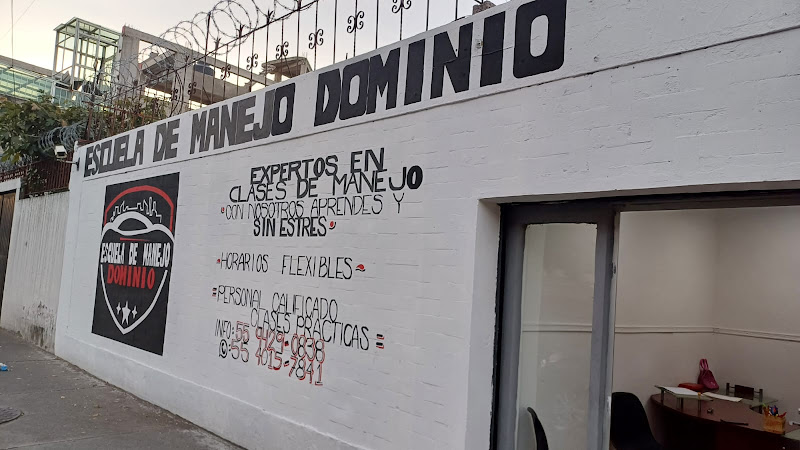 ESCUELA DE MANEJO DOMINIO
ESCUELA DE MANEJO
DOMINIO
EXPERTOS EN
CLASES DE MANEJO
CON NOSOTROS APRENDES Y
SIN ESTRES
HORARIOS FLEXIBLES
PERSONAL CALIFICADO
CLASES PRACTICAS
INFO: 55 9429-0838
55 4015-7841